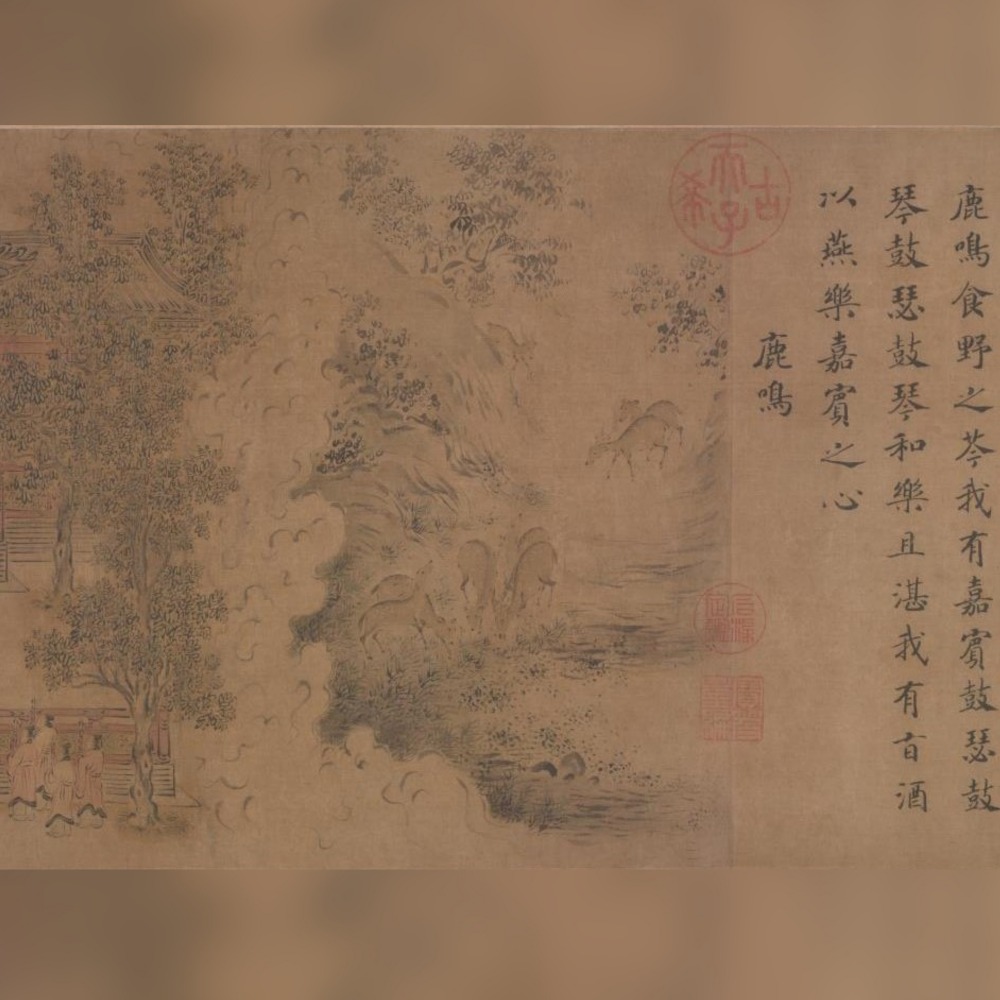 鹿鳴食野之芩我有嘉賓鼓瑟鼓
琴鼓瑟鼓琴和樂且湛我有旨酒
以燕樂嘉賓之心
鹿鳴
古希天子